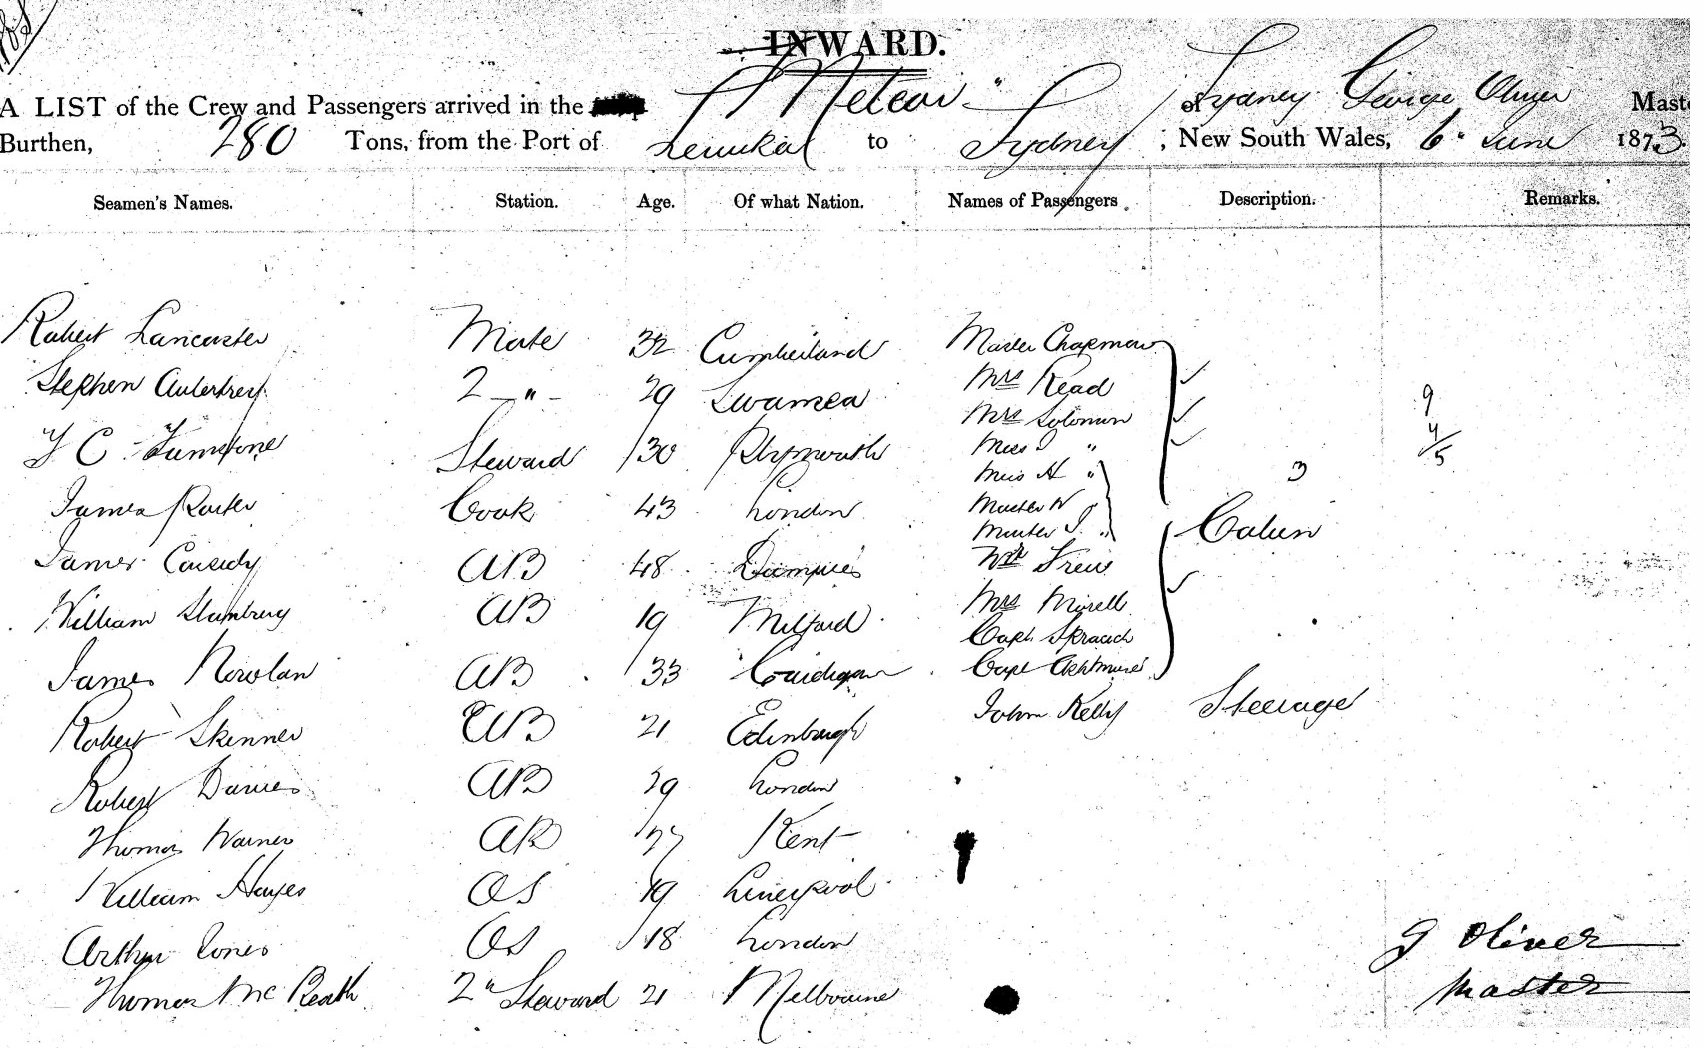 INWARD.
A LIST of the Crew and Passengers arrived in the "Meteor" of Sydney George Oliver Maste
Burthen, 280 Tons, from the Port of Levuka to Sydney, New South Wales, 6 June 1873.
Seamen's Names. Station. Age. Of what Nation. Names of Passengers. Description. Remarks.
Robert Lancaster Mate 32 Cumberland Master Chapman
Stephen 2 " 29 Swansea Mrs Read 9
Mrs Solomon 4/5
Y C Steward 30 Plymouth Miss I "
Miss H " 3
James Porter Cook 43 London Master W "
Master I " Cabin
James Cassidy AB 48
William AB 19 Milford Mrs
Capt
James Nowlan AB 33 Cardigan Capt
Robert Skinner AB 21 Edinburgh John Kelly Steerage
Robert Davies AB 29 London
Thomas Warner AB 27 Kent
William Hayes OS 19 Liverpool
Arthur Jones OS 18 London G Oliver
Thomas McBeath 2" Steward 21 Melbourne Master